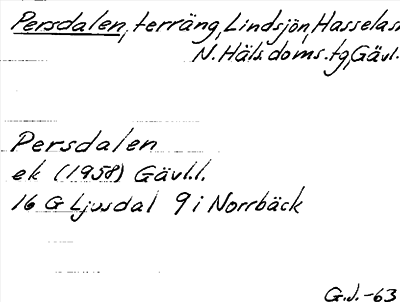 Persdalen, terräng, Lindsjön, Hasselas
N. Häls. doms. tg, Gävl.
Persdalen
ek (1958) Gävl.l.
16 G Ljusdal 9 i Norrbäck
G.J. -63